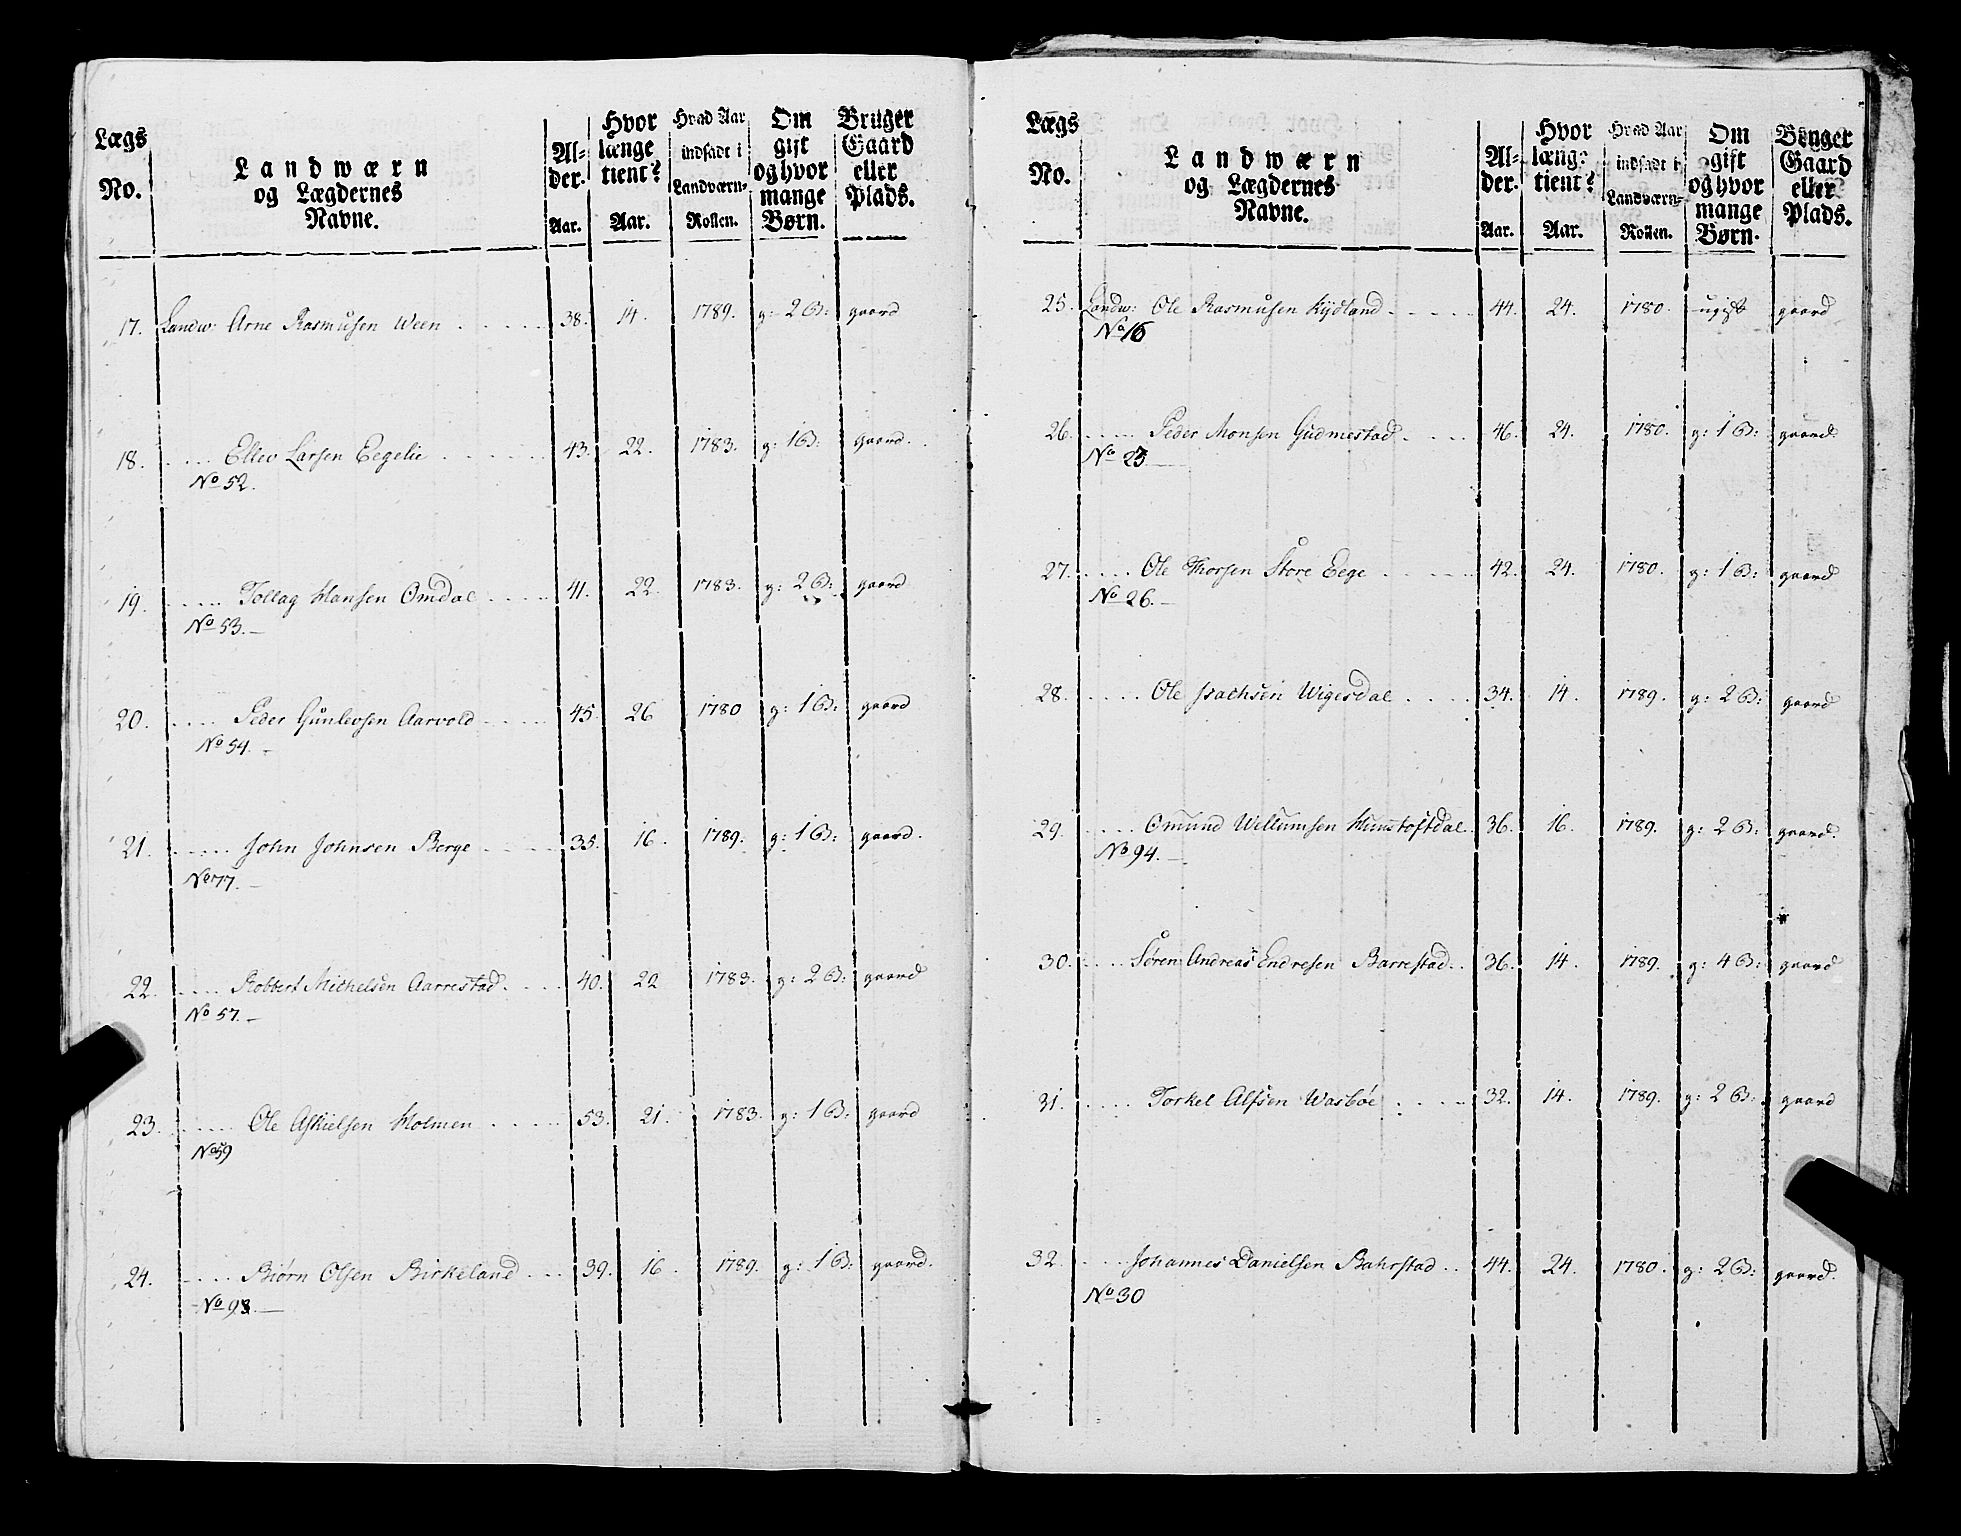 Lægs No. Landwærn og Lægdernes Navne. Al-der. Aar. Hvor længe tient? Aar. Hvad Aar indsadt i Landværn-Rollen. Om gift og hvor mange Børn. Bruger Gaard eller Plads.
17. Landw: Arne Rasmusen Ween 38. 14. 1789. g: 2 B: gaard
18. Ellev Larsen Eegelie 43. 22. 1783. g: 1 B: gaard.
No 52.
19. Tollag Hansen Omdal 41. 22. 1783. g: 2 B: gaard
No 53.
20. Peder Gunlevsen Aarvold 45. 26 1780 g: 1 B: gaard
No 54.
21. John Johnsen Berge 35. 16 1789. g: 1 B: gaard.
No 77.
22. Robbert Michelsen Aarrestad. 40. 22 1783. g: 2 B: gaard
No 57.
23. Ole Askielsen Holmen 53. 21. 1783. g: 1 B: gaard
No 59
24. Biørn Olsen Birkeland 39. 16 1789. g: 1 B: gaard.
No 93.
Lægs No. Landwærn og Lægdernes Navne. Al-der. Aar. Hvor længe tient? Aar. Hvad Aar indsadt i Landværn-Rollen. Om gift og hvor mange Børn. Bruger Gaard eller Plads.
25. Landw: Ole Rasmusen Kydland 44. 24. 1780. ugift gaard
No 16
26. Peder Monsen Gudmestad 46. 24. 1780. g: 1 B: gaard
No 25
27. Ole Thorsen Store Eege 42. 24. 1780. g: 1 B: gaard
No 26.
28. Ole Isachsen Wigesdal 34. 14. 1789. g: 2 B: gaard
29. Omund Willumsen Hunstoftdal 36. 16. 1789. g: 2 B: gaard
No 94.
30. Søren Andreas Endresen Barrestad 36. 14. 1789. g: 4 B: gaard
31. Torkel Alfsen Wasbøe 32. 14. 1789. g: 2 B: gaard
32. Johannes Danielsen Bahrstad 44. 24. 1780. g: 2 B: gaard.
No 30